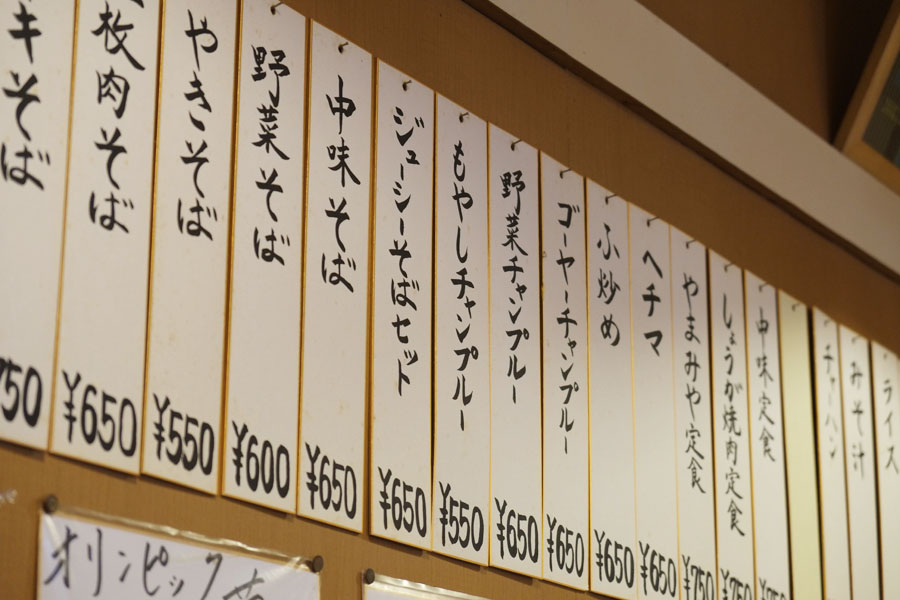 キそば
750
枚肉そば
¥650
やきそば
¥550
野菜そば
¥600
中味そば
¥650
ジューシーそばセット
¥650
もやしチャンプルー
¥550
野菜チャンプルー
¥650
ゴーヤーチャンプルー
¥650
ふ炒め
¥650
ヘチマ
¥650
やまみや定食
¥750
しょうが焼肉定食
¥750
中味定食
チャーハン
みそ汁
ライス
オリンピック